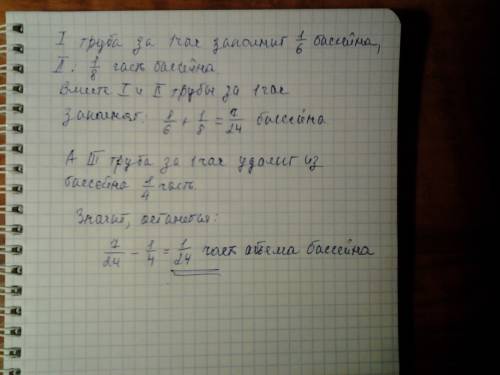 I труба за 1 час заполнит 1/6 бассейна,
II: 1/8 часть бассейна
Вместе I и II трубы за 1 час
Заполнят: 1/6 + 1/8 = 7/24 бассейна
А III труба за 1 час удалит из
бассейна 1/4 часть.
Значит, останется:
7/24 - 1/4 = 1/24 часть объема бассейна